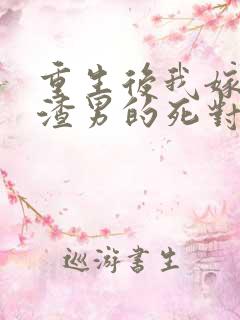 重生後我嫁
渣男的死對
巡游書生